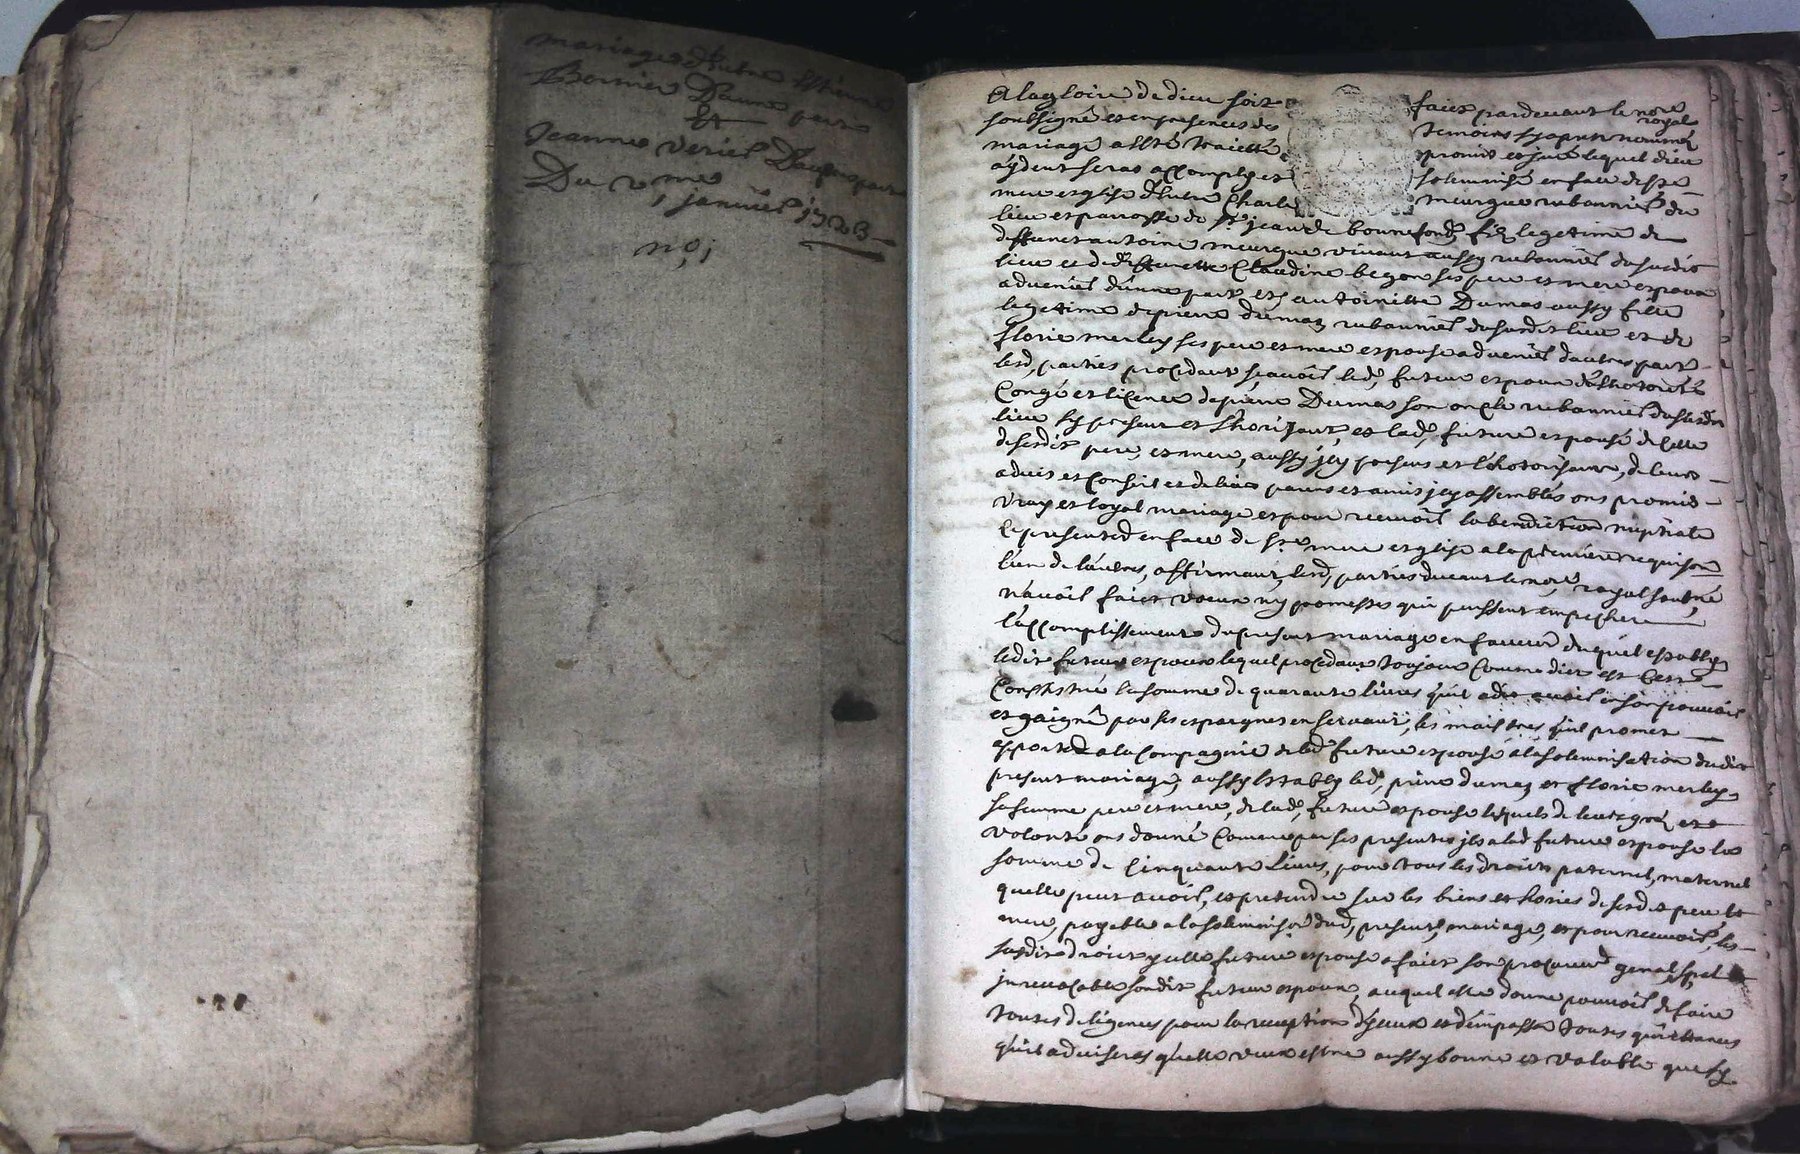 mariage d'Entre Estienne
Bonnier Daune part
Et
Jeanne Veries Daupar part
Du 2me
janvier 1723
no 1
A la gloire de dieu soit faict pardevant le nore royal
soubsigné et en presences des temoins sy apres nommés
mariage a esté traitté promis et juré lequel dieu
aydent seras accomply et solemnisé en face de ste
mere esglise d'Entre Charle meurgue rubannier du
lieu et paroisse de st jean de bonnefond, fils legetime de
deffunct antoine meurgue vivant aussy rubannier du susdit
lieu et de deffunctte Claudine begon ses pere et mere espoux
advenir d'une part et antoinette Dumas aussy fille
legetime de pierre dumas rubannier du susdit lieu et de
florie merley ses pere et mere espouse advenir dautres part
lesd, parties procedant sçavoir led, futeur espoux de lhotorité
Congé et licence de pierre Dumas son oncle rubannier du susdit
lieu sy present et lhorisant, et lad, future espouse de celle
de sesdit pere, et mere, aussy jcy presens et lhotorisants, de leurs
advis et Conseil et de leurs parens et amis jcy assemblés ons promis
vray et loyal mariage et pour recevoir la benediction nuptiale
se presenter en face de ste mere esglise a la premiere requison
l'un de l'autres, affirmant, lesd, parties devant le nore royal soubné
n'avoir faict voeux ny promesses qui puissent empescher
l'accomplissement du present mariage en faveur duquel estably
ledit futeur espoux lequel procedant toujour Comme dict est cest
Constitué la somme de quarante livres qu'il a dit avoir en son pouvoir
et gaigné par ses espargnes en servant, les maistres qu'il promet
apporter a la Compagnie de lad future espouse a la solemnisation dudit
present mariage, aussy Estably led, pierre dumas et florie merley
sa femme pere et mere, de lad, future espouse lequels de leurs gré et
volonté ons donné Comme par ses presentes jls a lad future espouse la
somme de Cinquante Livres, pour tous les droits paternel, maternel
quelle peut avoir, et pretendre sur les biens et hoiries de sesdit pere Et
mere, payable a la solemnison dud, present, mariage, et pour recevoir, les
susdit droict ycelle future espouse a faict son procureur genal, spel
jnrevocable sondit futeur espoux, auquel elle donne pouvoir de faire
toutes deligences pour la reception d'yceux et d'en passer toutes quittances
qu'il adviseras quelle veux estre aussy bonne et valable que sy